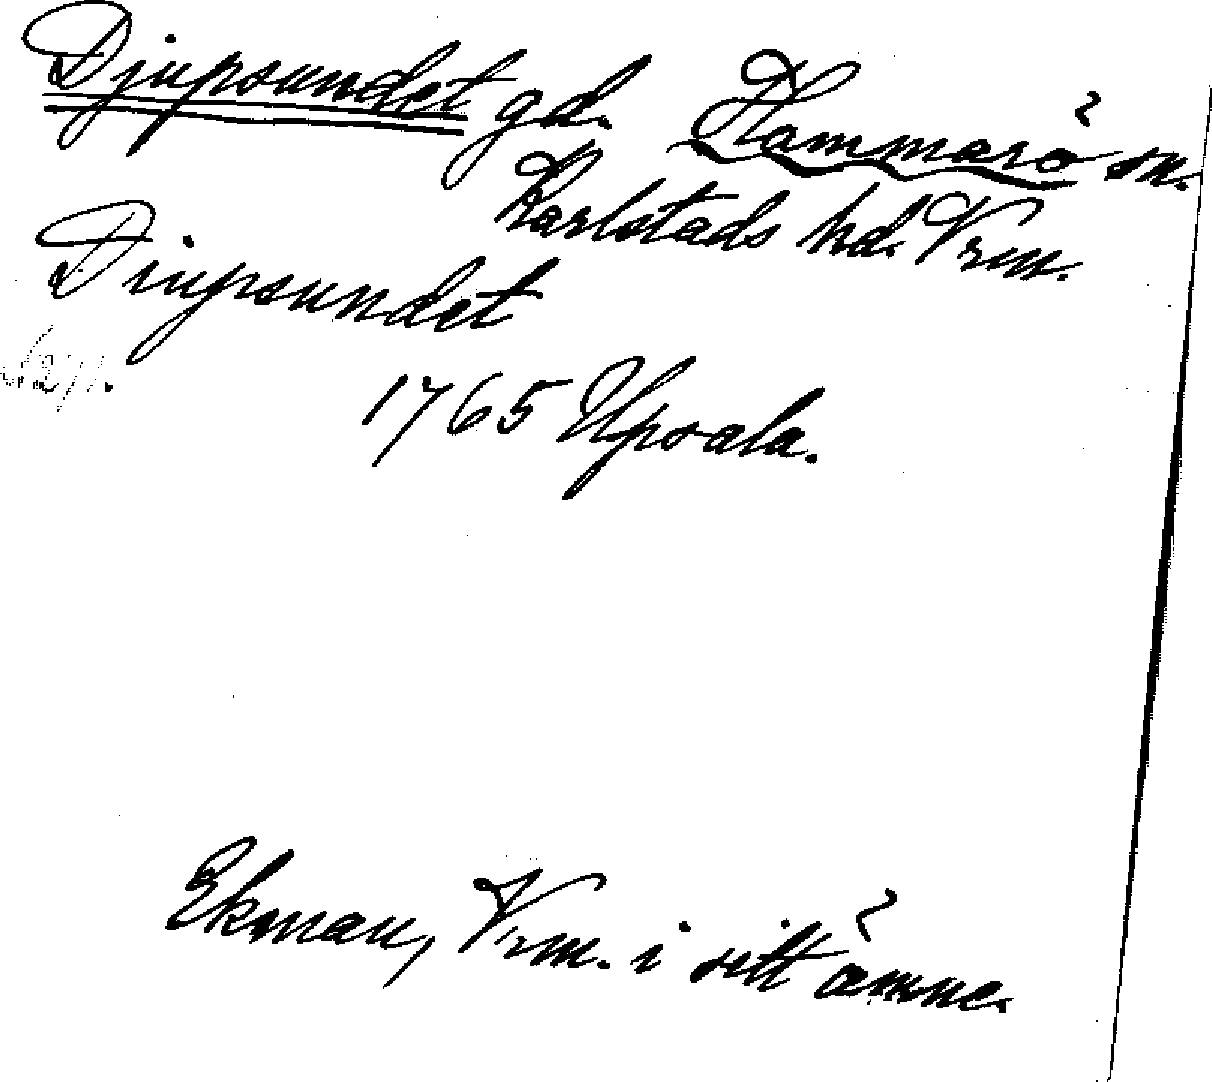 Djupsundet gd. Hammarö sn.
Karlstads hd. Vrm.
Diupsundet
s. 271.
1765 Upsala.
Ekman, Vrm. i sitt ämne.